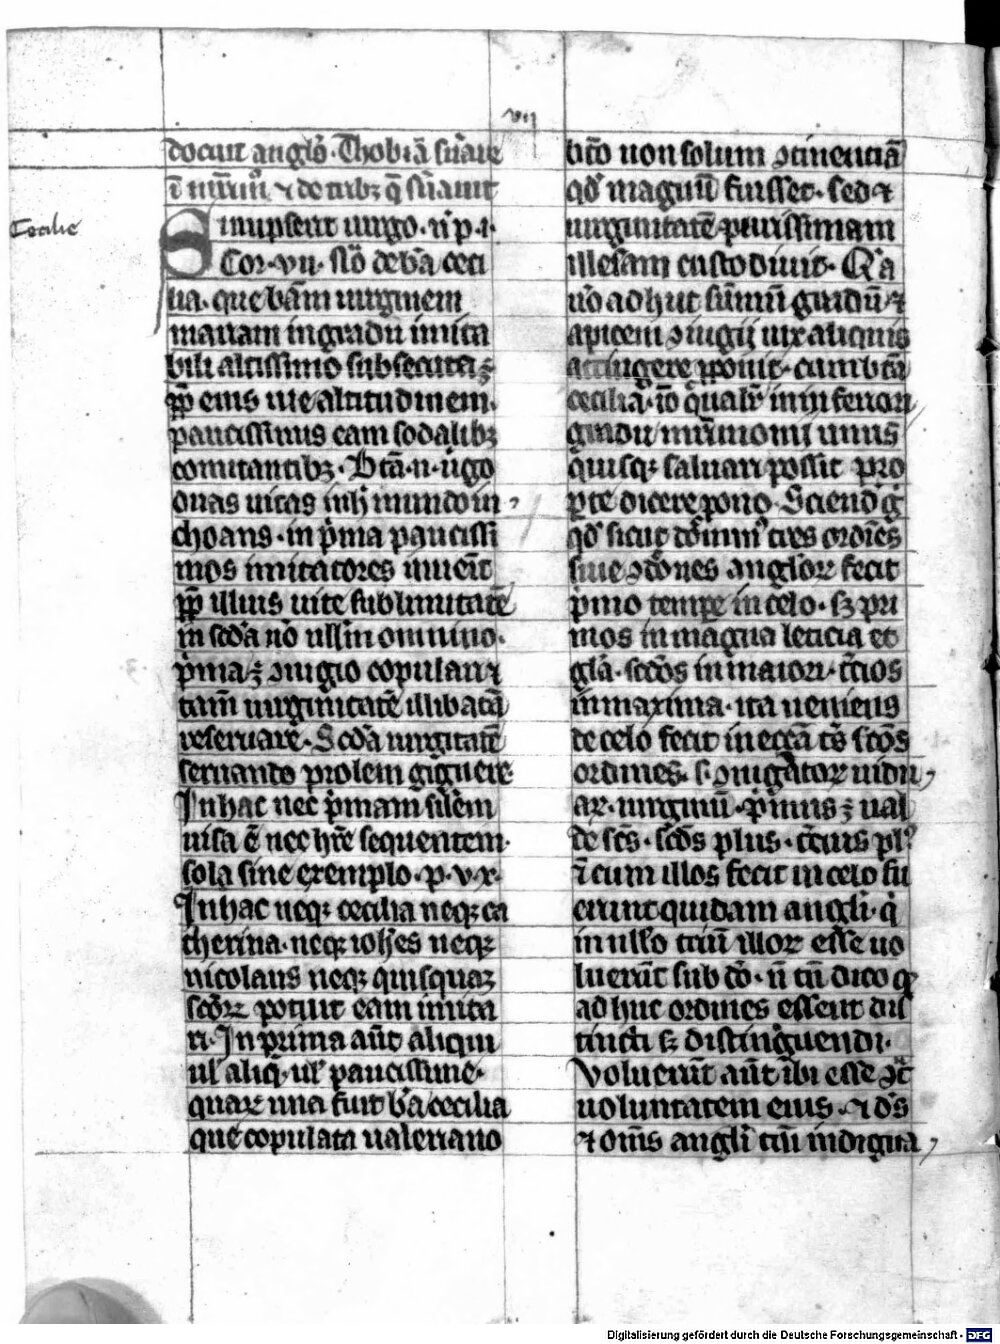 vij
docuit anglꝰ. Thobiā s̄uare
ī nr̄im ⁊ de tribꝫ q̄ s̄uauit
Cecilie
Si nupserit uirgo. n̄ p. i.
Cor. vii. sic̄ de bā ceci
lia. que bām uirginem
mariam in gradu imita
bili altissimo subsecuta ē
ꝓp̄ eius uie altitudinem.
paucissimis eam sodalibꝫ
comitantibꝫ. Btā. n. uͥgo
duas uitas in h̄ mundo in
choans. in p̄ma paucissi
mos imitatores inuenit
ꝓp̄ illius uite sublimitatē
in scd̄a nō ullū omnino.
p̄ma ē ↄiugio copulari ⁊
tam̄ uirginitatē illibatā
reseruare. Scd̄a uirgitatē
seruando prolem gignere.
In hac nec p̄mam silem
uisa ē nec hr̄e sequentem.
sola sine exemplo. p. v. x.
In hac neqꝫ cecilia neqꝫ ca
therina. neqꝫ ioh̄es neqꝫ
nicolaus neqꝫ quisquaꝫ
scōꝝ potuit eam imita
ri. In prima aūt aliqui
uł aliq̄. uł paucissime.
quaꝝ una fuit bā cecilia
que copulata ualeriano
uiro non solum ↄtinentiā
qd̓ magnū fuisset. sed ⁊
uirginitatē purissimam
illesam custodiuit. Qꝛ̄a
u̓o adhuc sūmū gradū ⁊
apicem ↄiugii uix aliquis
attingere pōuit. cum btā
cecilia. iō qualr̄ in inferiori
gradu mr̄imonij unus
quisqꝫ saluari possit pro
pt̄e dicere pono. Sciend̓ gͥ
qd̓ sicut dn̄s tres ordīes
siue ↄdōnes angloꝝ fecit
p̄mo tempe in celo. sꝫ pri
mos in magna leticia et
glā. scd̄os in maiori. t̄cios
in maxima. ita ueniens
de celo fecit in eccā t̄s scōs
ordines. s. ↄiugatoꝝ uidu
aꝝ. uirginū. p̄mus ē ual
de scs. scd̄s plus. t̄cius plꝰ
⁊ cum illos fecit in celo fu
erunt quidam angli. qͥ
in ullo triū illoꝝ esse no
luerūt sub dō. n̄ tn̄ dico qꝫ
adhuc ordines essent dis
tincti sꝫ distinguendi.
Voluerūt aūt ibi esse ↄt̄
uoluntatem eius. ⁊ ds̄
⁊ om̄s angli cū indigna
Digitalisierung gefördert durch die Deutsche Forschungsgemeinschaft - DFG